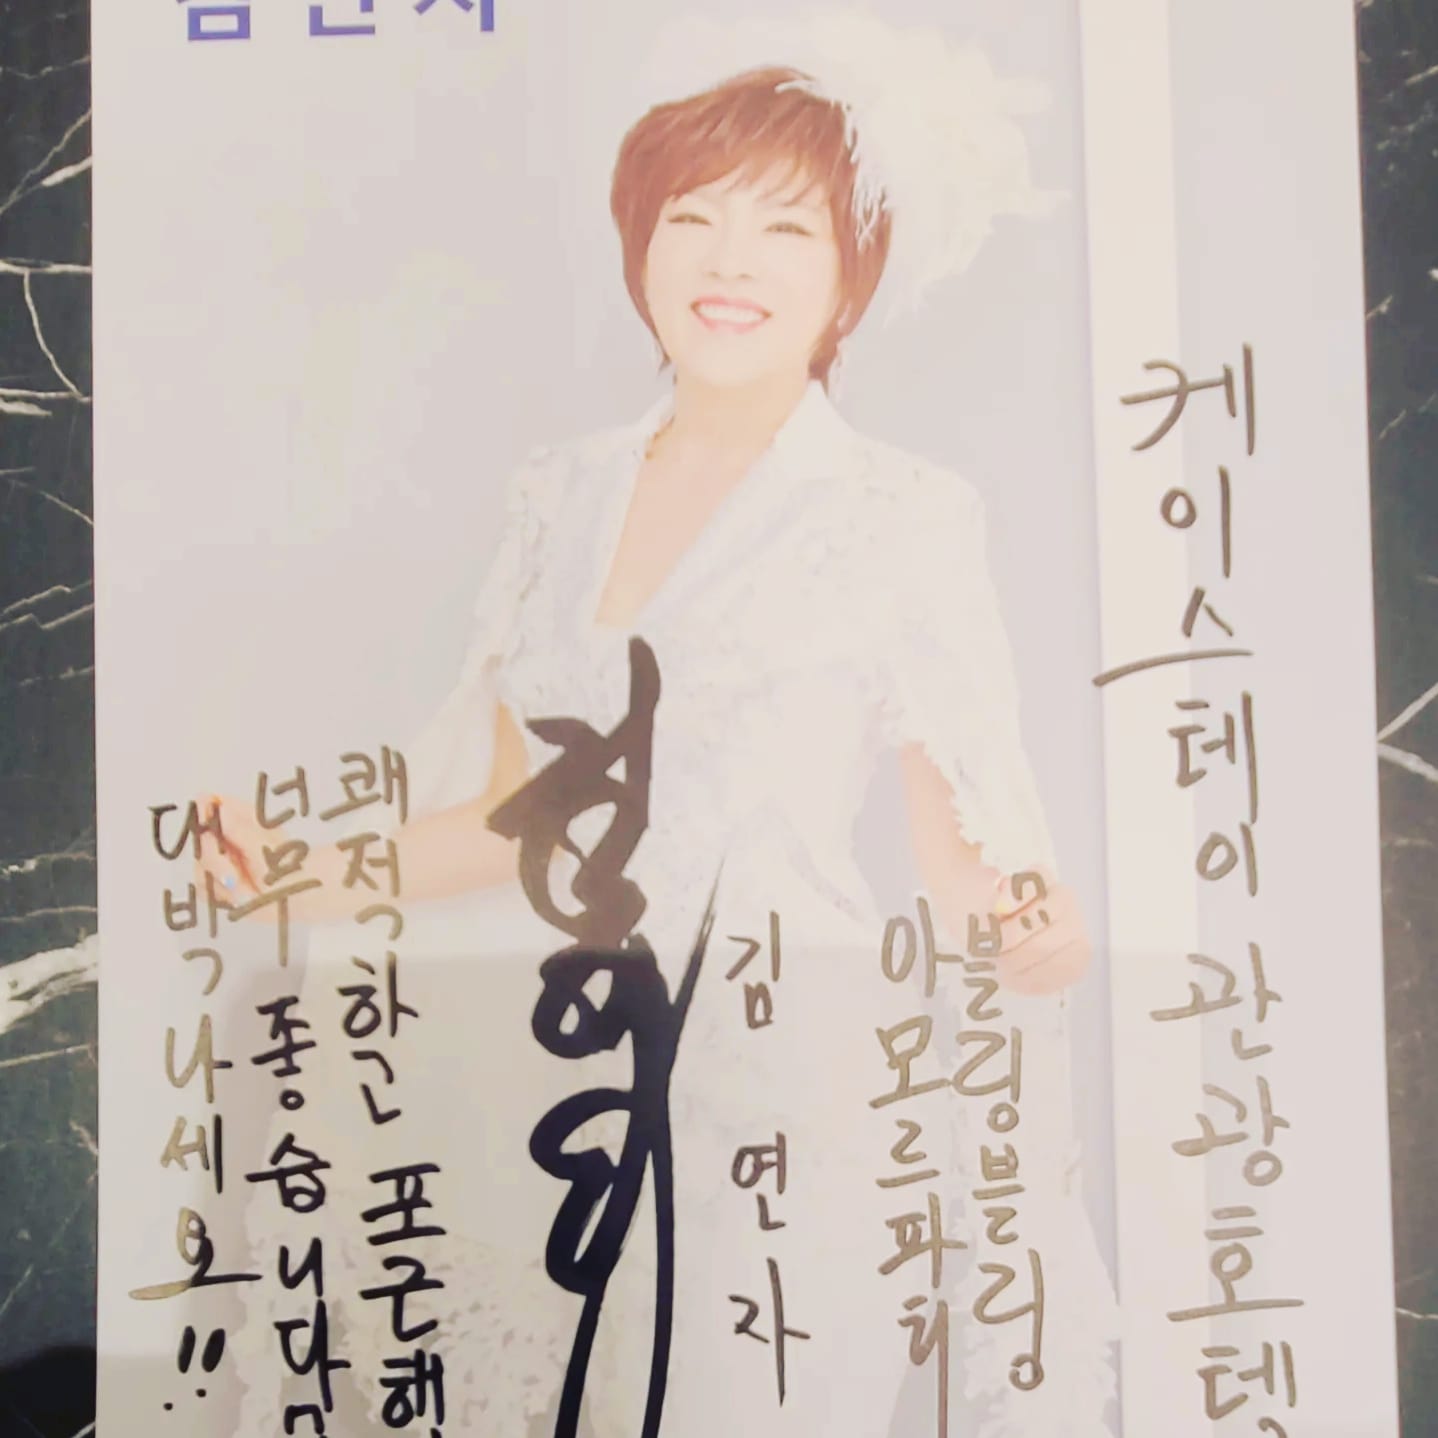 김연자
케이스테이 관광호텔
블링블링
아모르파티
김연자
쾌적하고 포근해
너무 좋습니다
대박나세요!!